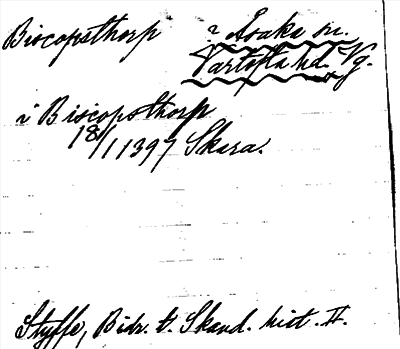 Biscopsthorp ? Åsaka sn.
Vartofta hd. Vg.
i Biscopsthorp
18/1 1397 Skara.
Styffe, Bidr. t. Skand. hist. II.